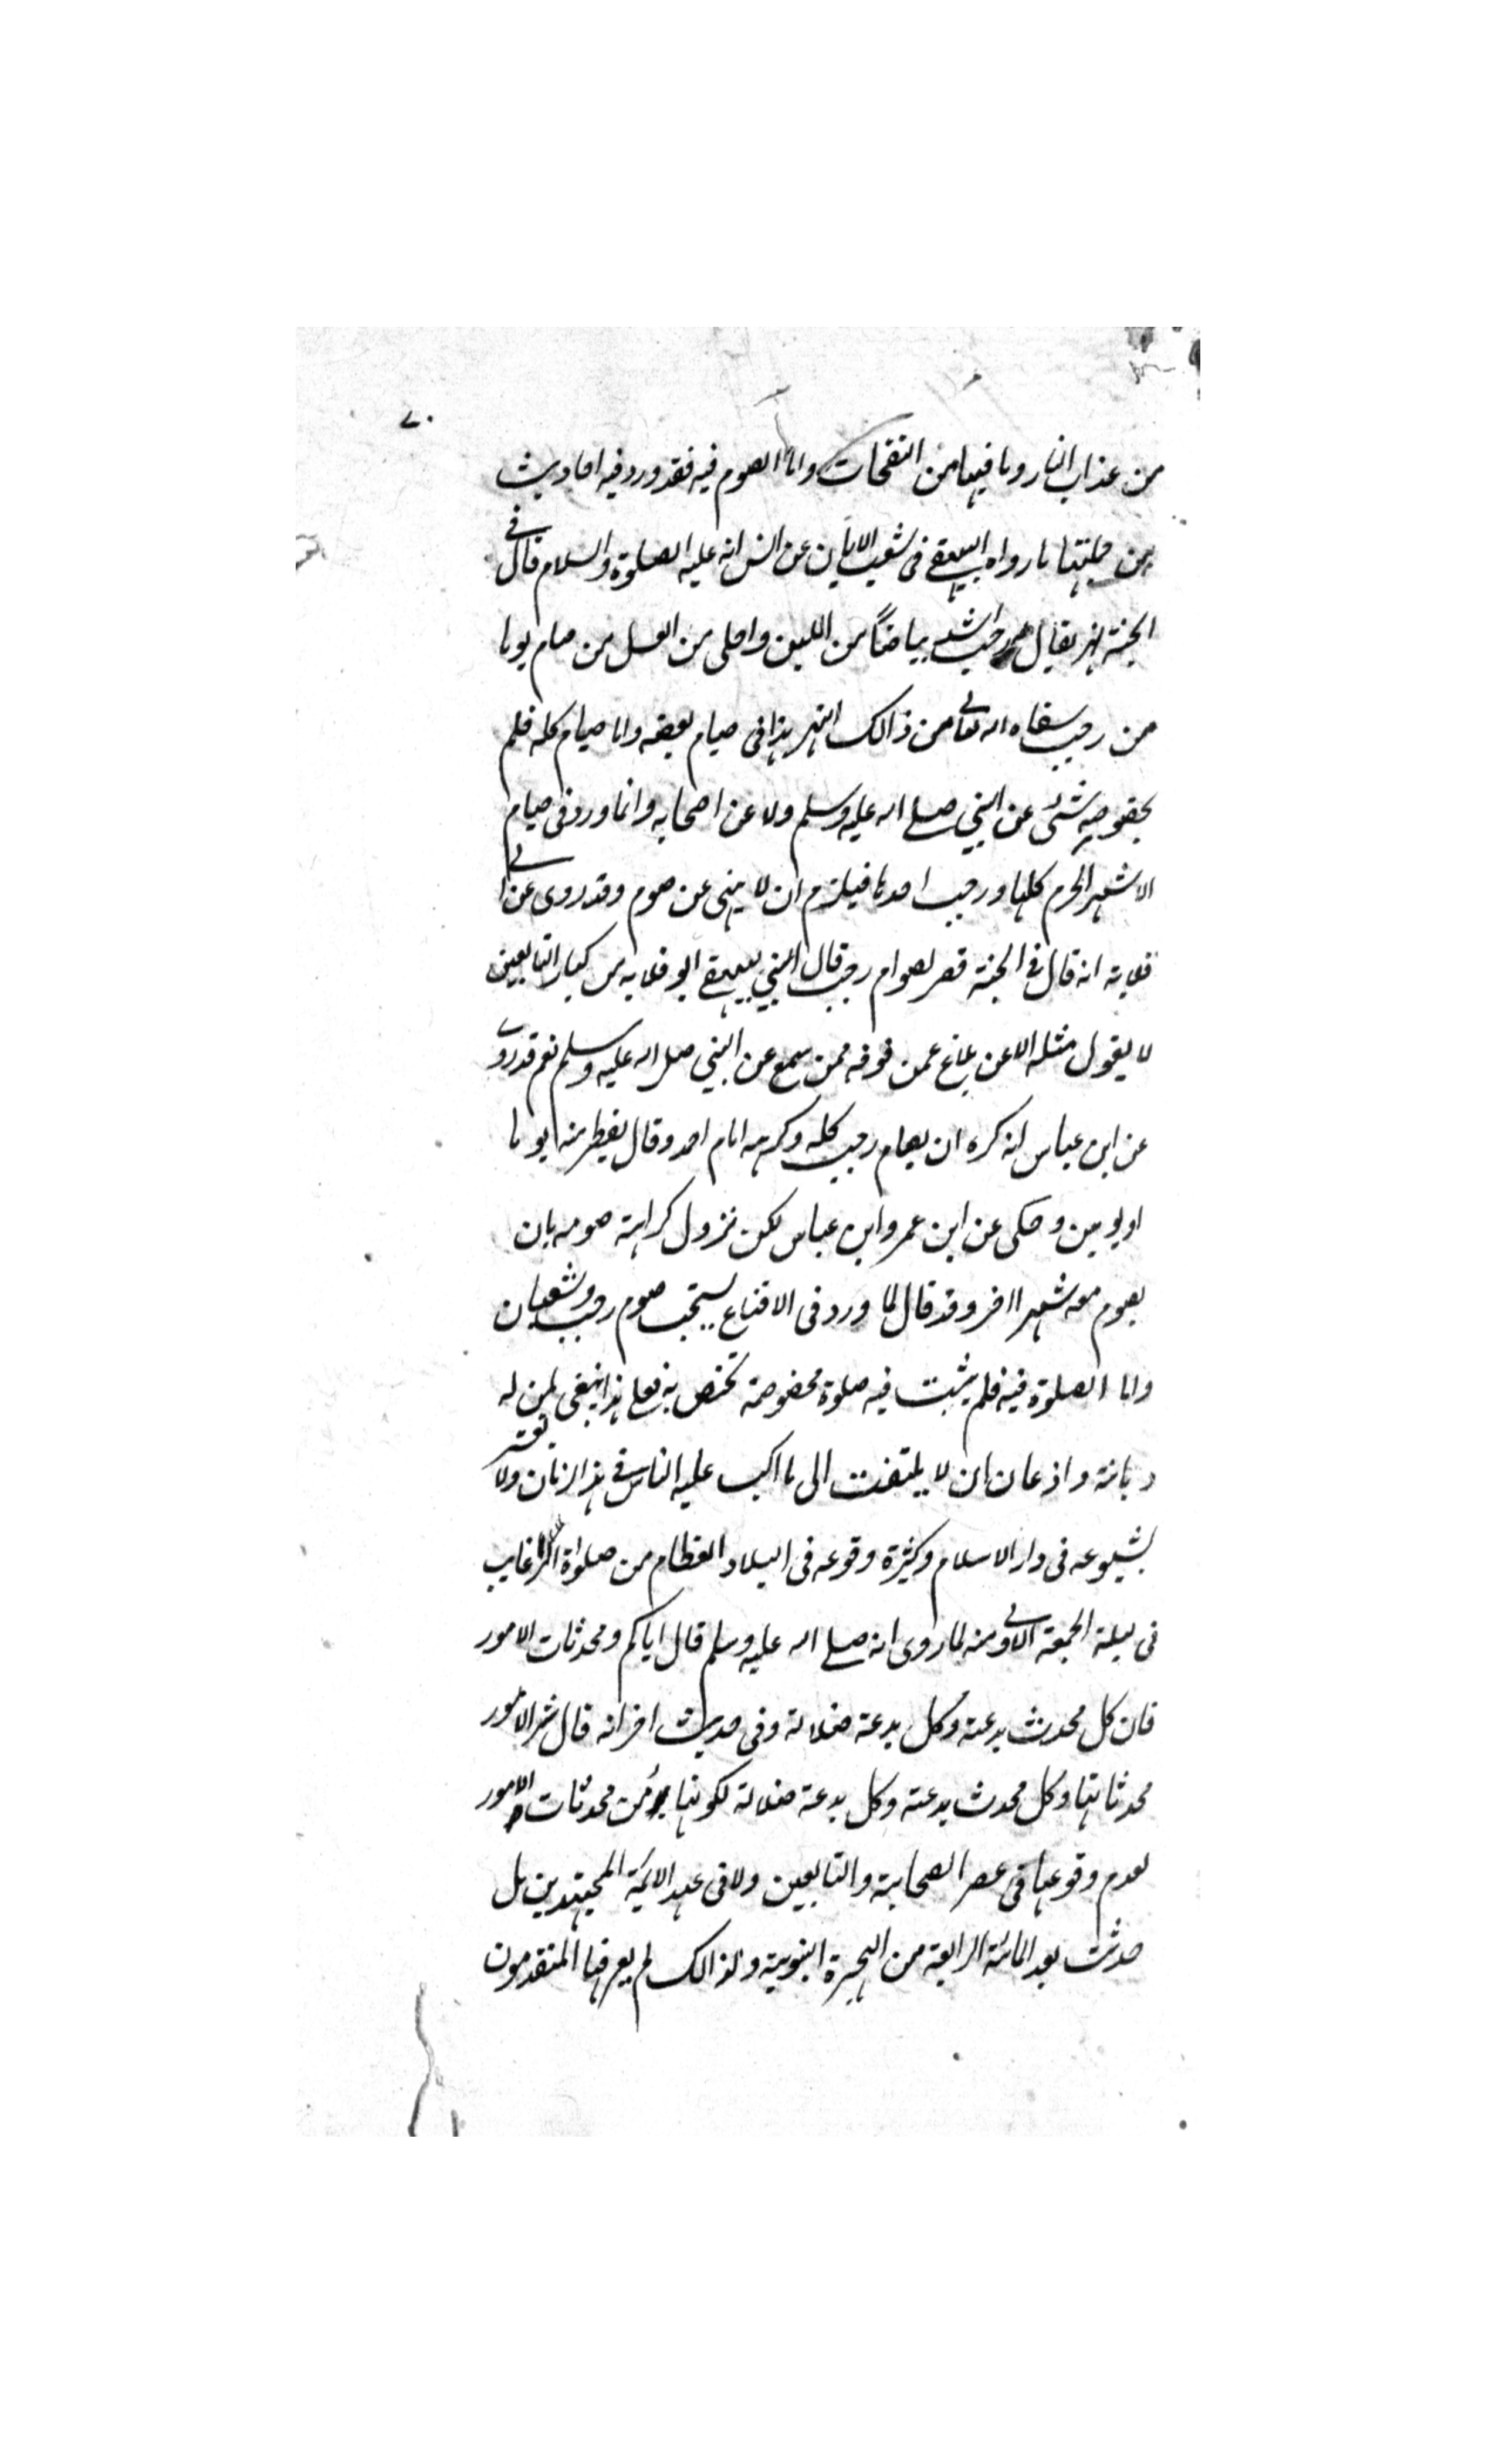 ٧٠
من عذاب النار وما فيها من النفحات واما الصوم فيه فقد ورد فيه احاديث
من جملتها ما رواه البيهقي في شعب الايمان عن انس انه عليه الصلوة والسلام قال في
الجنة نهر يقال رجب اشد بياضاً من اللبن واحلى من العسل من صام يوما
من رجب سقاه الله تعالى من ذالك النهر هذا في صيام بعضه واما صيام كله فلم
بخصوصه شئ عن النبي صلى الله عليه وسلم ولا عن اصحابه وانما ورد في صيام
الاشهر الحرم كلها ورجب احدها فيلزم ان لا ينهى عن صوم وقد روى عن ابي
قلابة انه قال في الجنة قصر لصوام رجب قال البيهقي ابو قلابه من كبار التابعين
لا يقول مثله الا عن بلاغ عمن فوقه ممن سمع عن النبي صلى الله عليه وسلم نعم قد روى
عن ابن عباس انه كره ان يصام رجب كله وكرهه امام احمد وقال يفطر منه يوما
او يومين وحكى عن ابن عمر وابن عباس لكن تزول كراهة صومه بان
يصوم معه شهرا اخر وقد قال لما ورد في الاقناع يستحب صوم رجب وشعبان
واما الصلوة فيه فلم يثبت فيه صلوة مخصوصة تختص به فعلى هذا ينبغي لمن له
ديانة واذعان ان لا يلتفت الى ما اكب عليه الناس في هذا الزمان ولا يغتر
بشيوعه في دار الاسلام وكثرة وقوعه في البلاد العظام من صلواة الرغايب
في ليلة الجمعة الاولى منه لما روى انه صلى الله عليه وسلم قال اياكم ومحدثات الامور
فان كل محدث بدعة وكل بدعة ضلالة وفي حديث اخر انه قال شر الامور
محدثاتها وكل محدث بدعة وكل بدعة ضلالة لكونها من محدثات الامور
لعدم وقوعها في عصر الصحابة والتابعين ولا في عهد الائمة المجتهدين بل
حدثت بعد المائة الرابعة من الهجرة النبوية ولذالك لم يعرفها المتقدمون